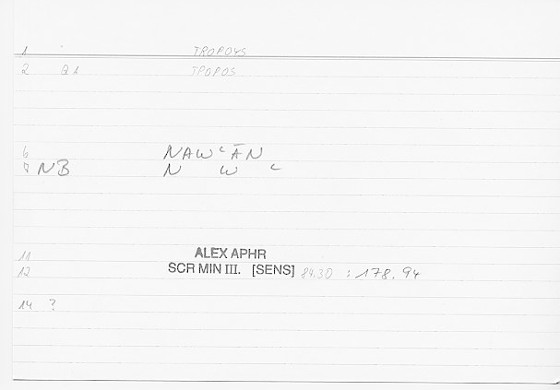 1 TROPOYS
2 B1 TPOPOS
6 NAWCĀN
7 NB N W C
11 ALEX APHR
12 SCR MIN III. [SENS] 84.30 : 178.94
14 ?